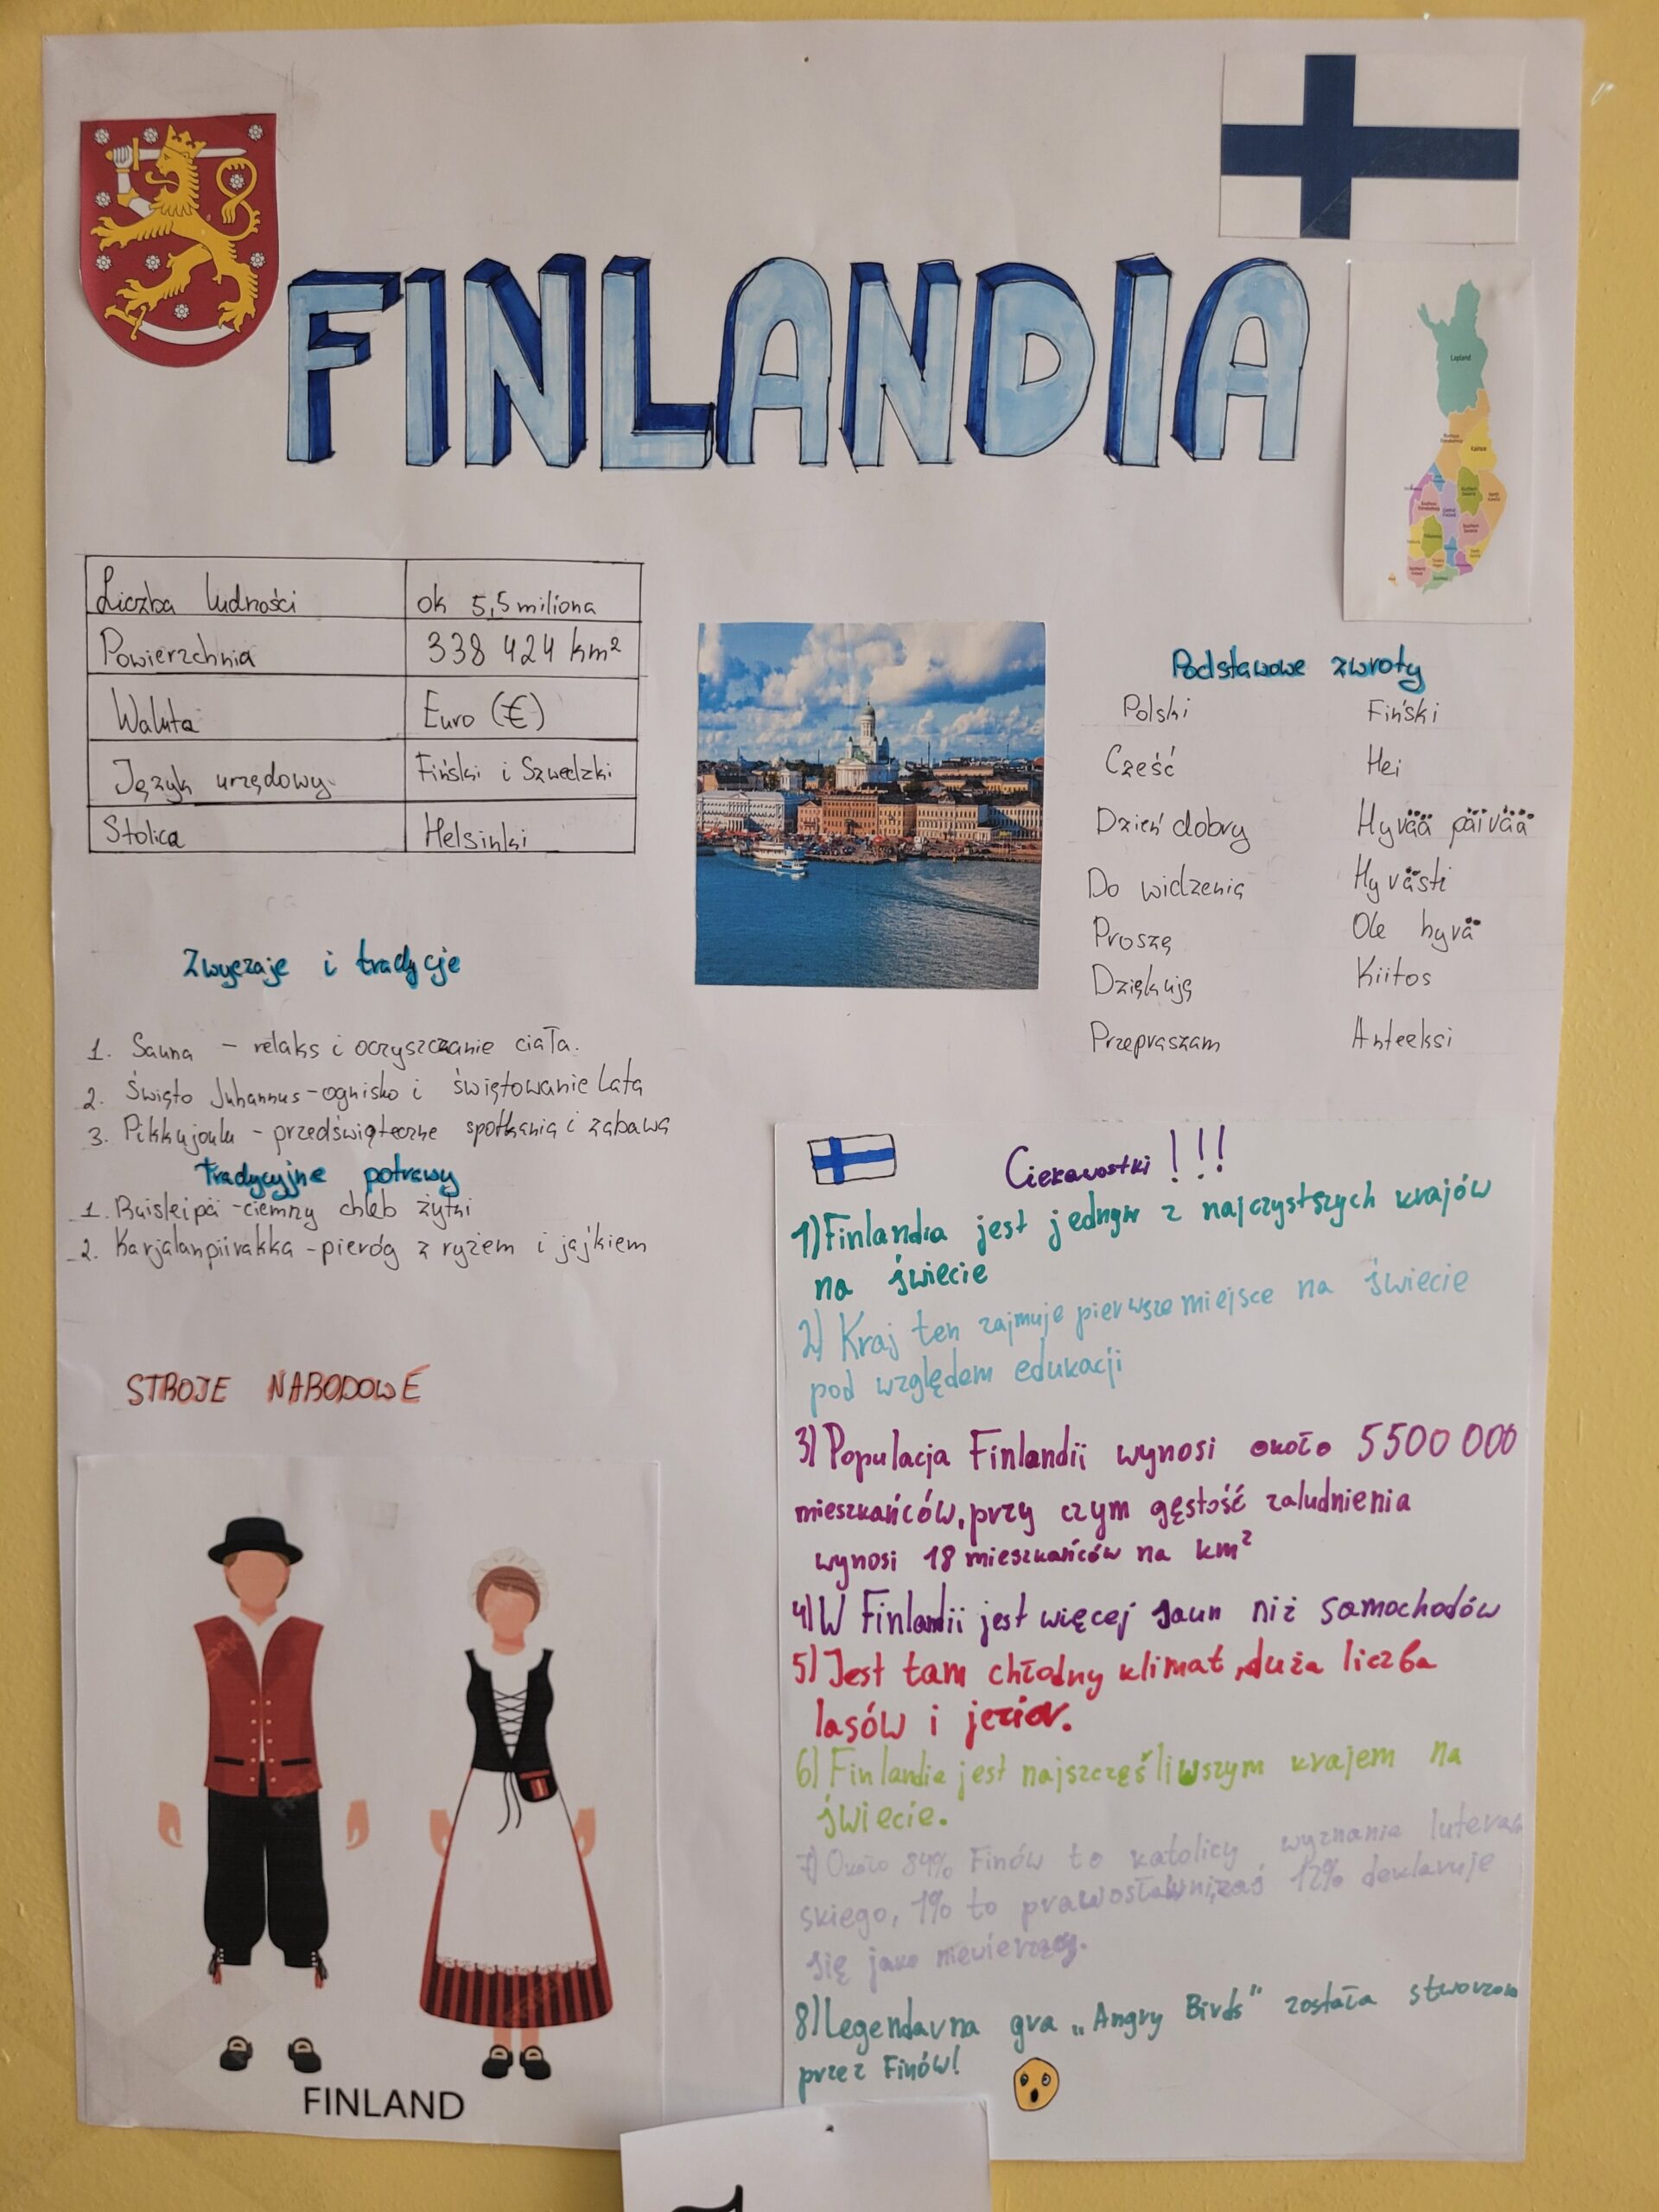 FINLANDIA
Lapland
Kainuu
Liczba ludności ok 5,5 miliona
Powierzchnia 338 424 km²
Waluta Euro (€)
Język urzędowy Fiński i Szwedzki
Stolica Helsinki
Podstawowe zwroty
Polski Fiński
Cześć Hei
Dzień dobry Hyvää päivää
Do widzenia Hyvästi
Proszę Ole hyvä
Dziękuję Kiitos
Przepraszam Anteeksi
Zwyczaje i tradycje
1. Sauna - relaks i oczyszczanie ciała.
2. Święto Juhannus - ognisko i świętowanie lata
3. Pikkujoulu - przedświąteczne spotkania i zabawa
Tradycyjne potrawy
1. Ruisleipä - ciemny chleb żytni
2. Karjalanpiirakka - pieróg z ryżem i jajkiem
STROJE NARODOWE
FINLAND
Ciekawostki!!!
1) Finlandia jest jednym z najczystszych krajów
na świecie
2) Kraj ten zajmuje pierwsze miejsce na świecie
pod względem edukacji
3) Populacja Finlandii wynosi około 5500 000
mieszkańców, przy czym gęstość zaludnienia
wynosi 18 mieszkańców na km²
4) W Finlandii jest więcej saun niż samochodów
5) Jest tam chłodny klimat, duża liczba
lasów i jezior.
6) Finlandia jest najszczęśliwszym krajem na
świecie.
7) Około 84% Finów to katolicy wyznania luterań
skiego, 1% to prawosławni, zaś 12% deklaruje
się jako niewierzący.
8) Legendarna gra „Angry Birds" została stworzona
przez Finów!